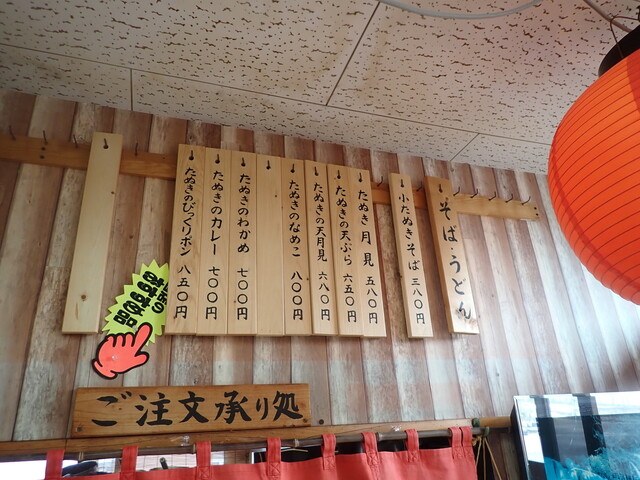 そば・うどん
小たぬきそば 三八〇円
たぬき月見 五八〇円
たぬきの天ぷら 六五〇円
たぬきの天月見 六八〇円
たぬきのなめこ 八〇〇円
たぬきのわかめ 七〇〇円
たぬきのカレー 七〇〇円
たぬきのびっくりボン 八五〇円
当店の
おすすめ品
ご注文承り処